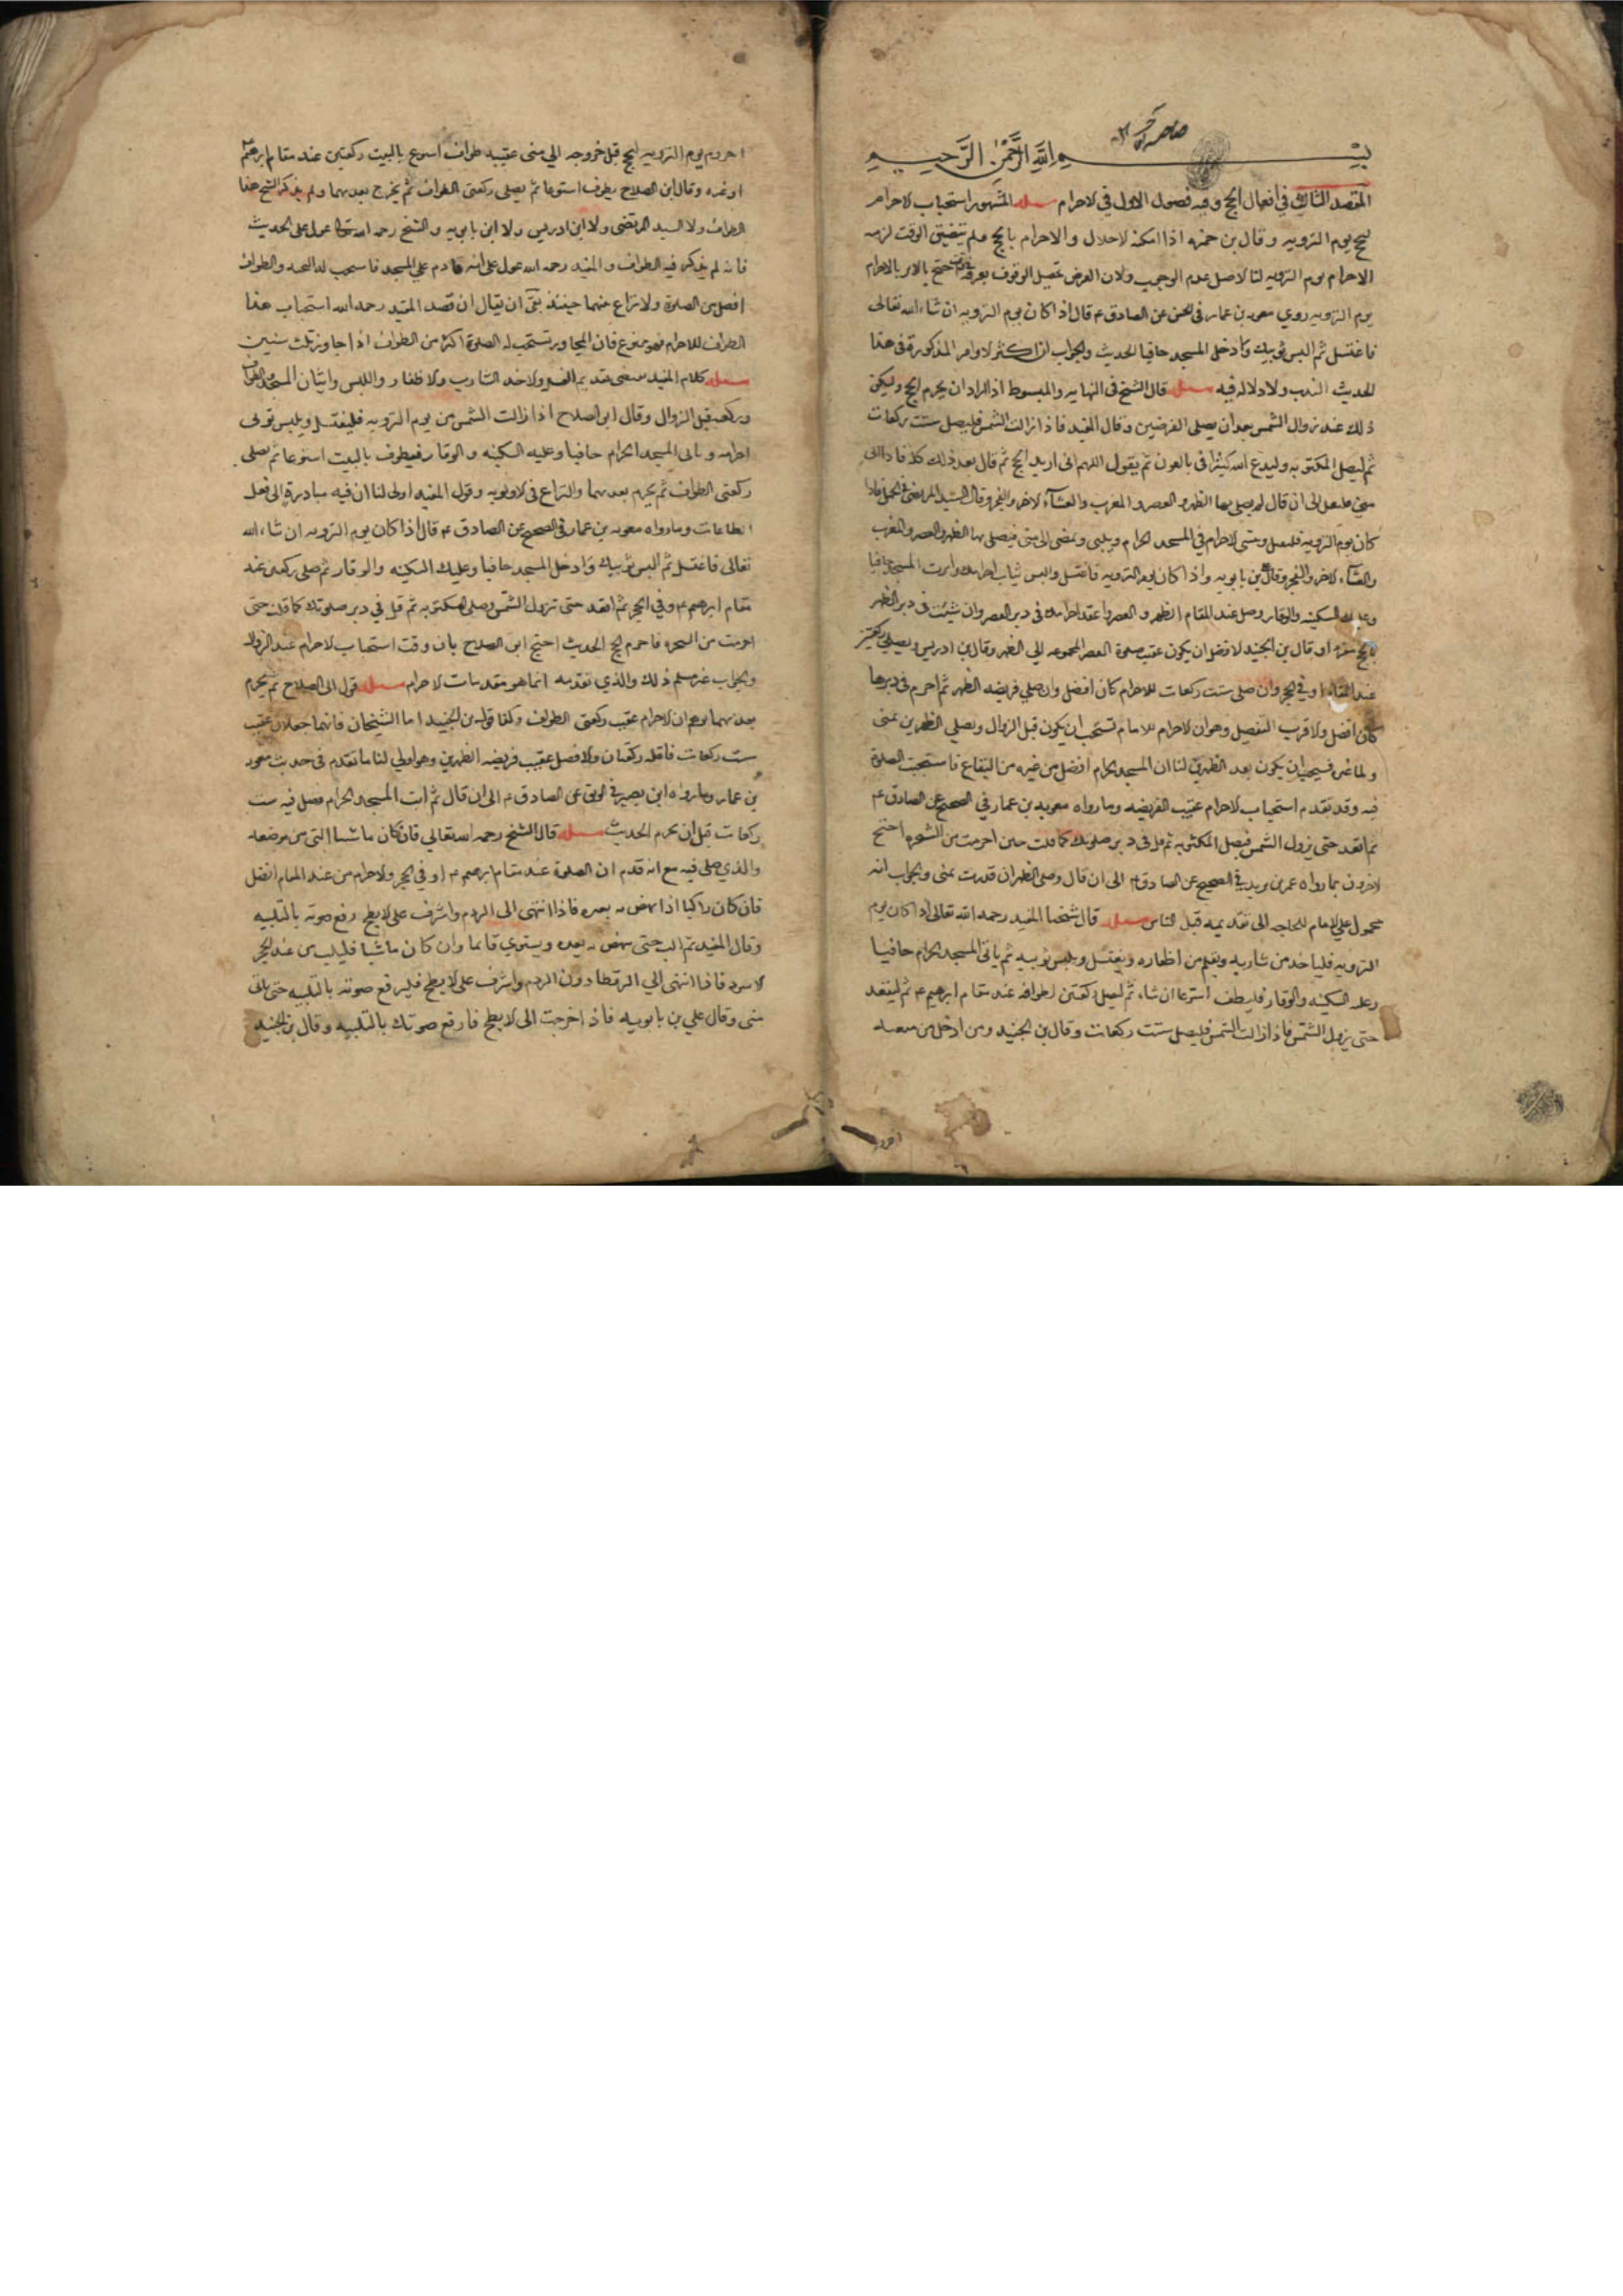 بسم الله الرحمن الرحيم
المقصد الثالث في افعال الحج وفيه فصول الاول في الاحرام مسئله المشهور استحباب الاحرام
للحج يوم الترويه وقال بن حمزه اذا امكنه الاحلال والاحرام بالحج ولم يتضيق الوقت لزمه
الاحرام يوم الترويه لنا الاصل عدم الوجوب ولان الغرض تحصيل الوقوف بعرفه احتج بالامر بالاحرام
يوم الترويه روى معويه بن عمار في الحسن عن الصادق ع قال اذا كان يوم الترويه ان شاء الله تعالى
فاغتسل ثم البس ثوبيك وادخل المسجد حافيا الحديث والجواب ان اكثر الاوامر المذكورة في هذا
الحديث الندب ولا دلاله فيه مسئله قال الشيخ في النهايه والمبسوط اذا اراد ان يحرم للحج وليكن
ذلك عند زوال الشمس بعد ان يصلى الفرضين وقال المفيد فاذا زالت الشمس فليصل ست ركعات
ثم ليصل المكتوبه وليدع الله كثيرا في بالعون ثم يقول اللهم انى اريد الحج ثم قال بعد ذلك كلا فاذا اتى
منى الى ان قال ثم يصلى بها الظهر والعصر والمغرب والعشاء الاخره والفجر وقال السيد المرتضى في الجمل فاذا
كان يوم الترويه فليغتسل وينشى الاحرام في المسجد الحرام ويلبى ويمضى الى منى فيصلى بها الظهر والعصر والمغرب
والعشاء الاخره والفجر وقال بن بابويه واذا كان يوم الترويه فاغتسل والبس ثياب احرامك وأت المسجد حافيا
وعليك السكينه والوقار وصل عند المقام الظهر و العصر واعقد احرامك في دبر العصر وان شئت في دبر الظهر
بالحج مفردا وقال بن الجنيد الافضل ان يكون عقيب صلوة العصر المجموعه الى الظهر وقال بن ادريس ويصلى ركعتين
عند المقام او في الحجر وان صلى ست ركعات للاحرام كان افضل وان صلى فريضه الظهر ثم احرم في دبرها
كان افضل والاقرب التفصيل وهو ان الاحرام للامام تستحب ان يكون قبل الزوال ويصلى الظهرين بمنى
واما غيره فيستحب ان يكون بعد الظهرين لنا ان المسجد الحرام افضل من غيره من البقاع فاستحبت الصلوة
فيه وقد تقدم استحباب الاحرام عقيب الفريضه وما رواه معويه بن عمار في الصحيح عن الصادق ع
ثم اقعد حتى يزول الشمس فصل المكتوبه ثم قل في دبر صلوتك كما قلت حين احرمت من الشجره احتج
الاخرون بما رواه عمر بن يزيد في الصحيح عن الصادق ع الى ان قال وصل الظهر ان قدرت بمنى والجواب انه
محمول على الامام للحاجه الى تقديمه قبل الناس مسئله قال شيخنا المفيد رحمه الله تعالى اذا كان يوم
الترويه فلياخذ من شاربه ويقلم من اظفاره ويغتسل ويلبس ثوبيه ثم ياتى المسجد الحرام حافيا
وعليه السكينه والوقار فليطف اسبوعا ان شاء ثم ليصل ركعتين لطوافه عند مقام ابرهيم ع ثم ليقعد
حتى يزول الشمس فاذا زالت الشمس فليصل ست ركعات وقال بن الجنيد ومن ادخل من
احرم يوم الترويه للحج قبل خروجه الى منى عقيبه طواف اسبوع بالبيت ركعتين عند مقام ابرهيم
او غيره وقال ابن الصلاح يطوف اسبوعا ثم يصلى ركعتى الطواف ثم يخرج بعدهما ولم يذكر الشيخ هذا
الطواف ولا السيد المرتضى ولا ابن ادريس ولا ابن بابويه والشيخ رحمه الله عول على الحديث
فانه لم يذكر فيه الطواف والمفيد رحمه الله عول على انه قادم على المسجد فاستحب له التحيه والطواف
افضل من الصلوة ولا نزاع بينهما حينئذ بقى ان يقال ان قصد المفيد رحمه الله استحباب هذا
الطواف للاحرام فهو ممنوع فان المجاور تستحب له الصلوة اكثر من الطواف اذا جاوز ثلث سنين
مسئله كلام المفيد يعطى تقديم الغسل والاخذ الشارب والاظفار واللبس واتيان المسجد والطواف
وركعتيه قبل الزوال وقال ابو الصلاح اذا زالت الشمس من يوم الترويه فليغتسل ويلبس ثوبى
احرامه وياتى المسجد الحرام حافيا وعليه السكينه والوقار فيطوف بالبيت اسبوعا ثم يصلى
ركعتى الطواف ثم يحرم بعدهما والنزاع في الاولويه وقول المفيد اولى لنا ان فيه مبادرة الى فعل
الطاعات وما رواه معويه بن عمار في الصحيح عن الصادق ع قال اذا كان يوم الترويه ان شاء الله
تعالى فاغتسل ثم البس ثوبيك وادخل المسجد حافيا وعليك السكينه والوقار ثم صلى ركعتين عند
مقام ابرهيم ع وفي الحجر ثم اقعد حتى تزول الشمس وصلى المكتوبه ثم قل في دبر صلوتك كما قلت حين
احرمت من الشجره فاحرم للحج الحديث احتج ابن الصلاح بان وقت استحباب الاحرام عند الزوال
والجواب غير مسلم ذلك والذي نقدمه انما هو مقدمات الاحرام مسئله قول ابى الصلاح ثم يحرم
بعدهما يوهم ان الاحرام عقيب ركعتى الطواف وكذا قول بن الجنيد اما الشيخان فانهما جعلاه عقيب
ست ركعات فاقله ركعتان والافضل عقيب فريضه الظهرين وهو اولى لنا ما تقدم في حديث معويه
بن عمار وما رواه ابن بصير في الموثق عن الصادق ع الى ان قال ثم ائت المسجد الحرام فصل فيه ست
ركعات قبل ان تحرم الحديث مسئله قال الشيخ رحمه الله تعالى فان كان ماشيا لبى من موضعه
والذي صلى فيه مع انه قدم ان الصلوة عند مقام ابرهيم ع او في الحجر والاحرام من عند المقام افضل
فان كان راكبا اذا نهض به بعيره فاذا انتهى الى الردم واشرف على الابطح رفع صوته بالتلبيه
وقال المفيد ثم البث حتى نهض به بعيره ويستوي قائما وان كان ماشيا فليلب من عند الحجر
الاسود فاذا انتهى الى الرقطا دون الردم واشرف على الابطح فليرفع صوته بالتلبيه حتى ياتى
منى وقال علي بن بابويه فاذا خرجت الى الابطح فارفع صوتك بالتلبيه وقال بن الجنيد